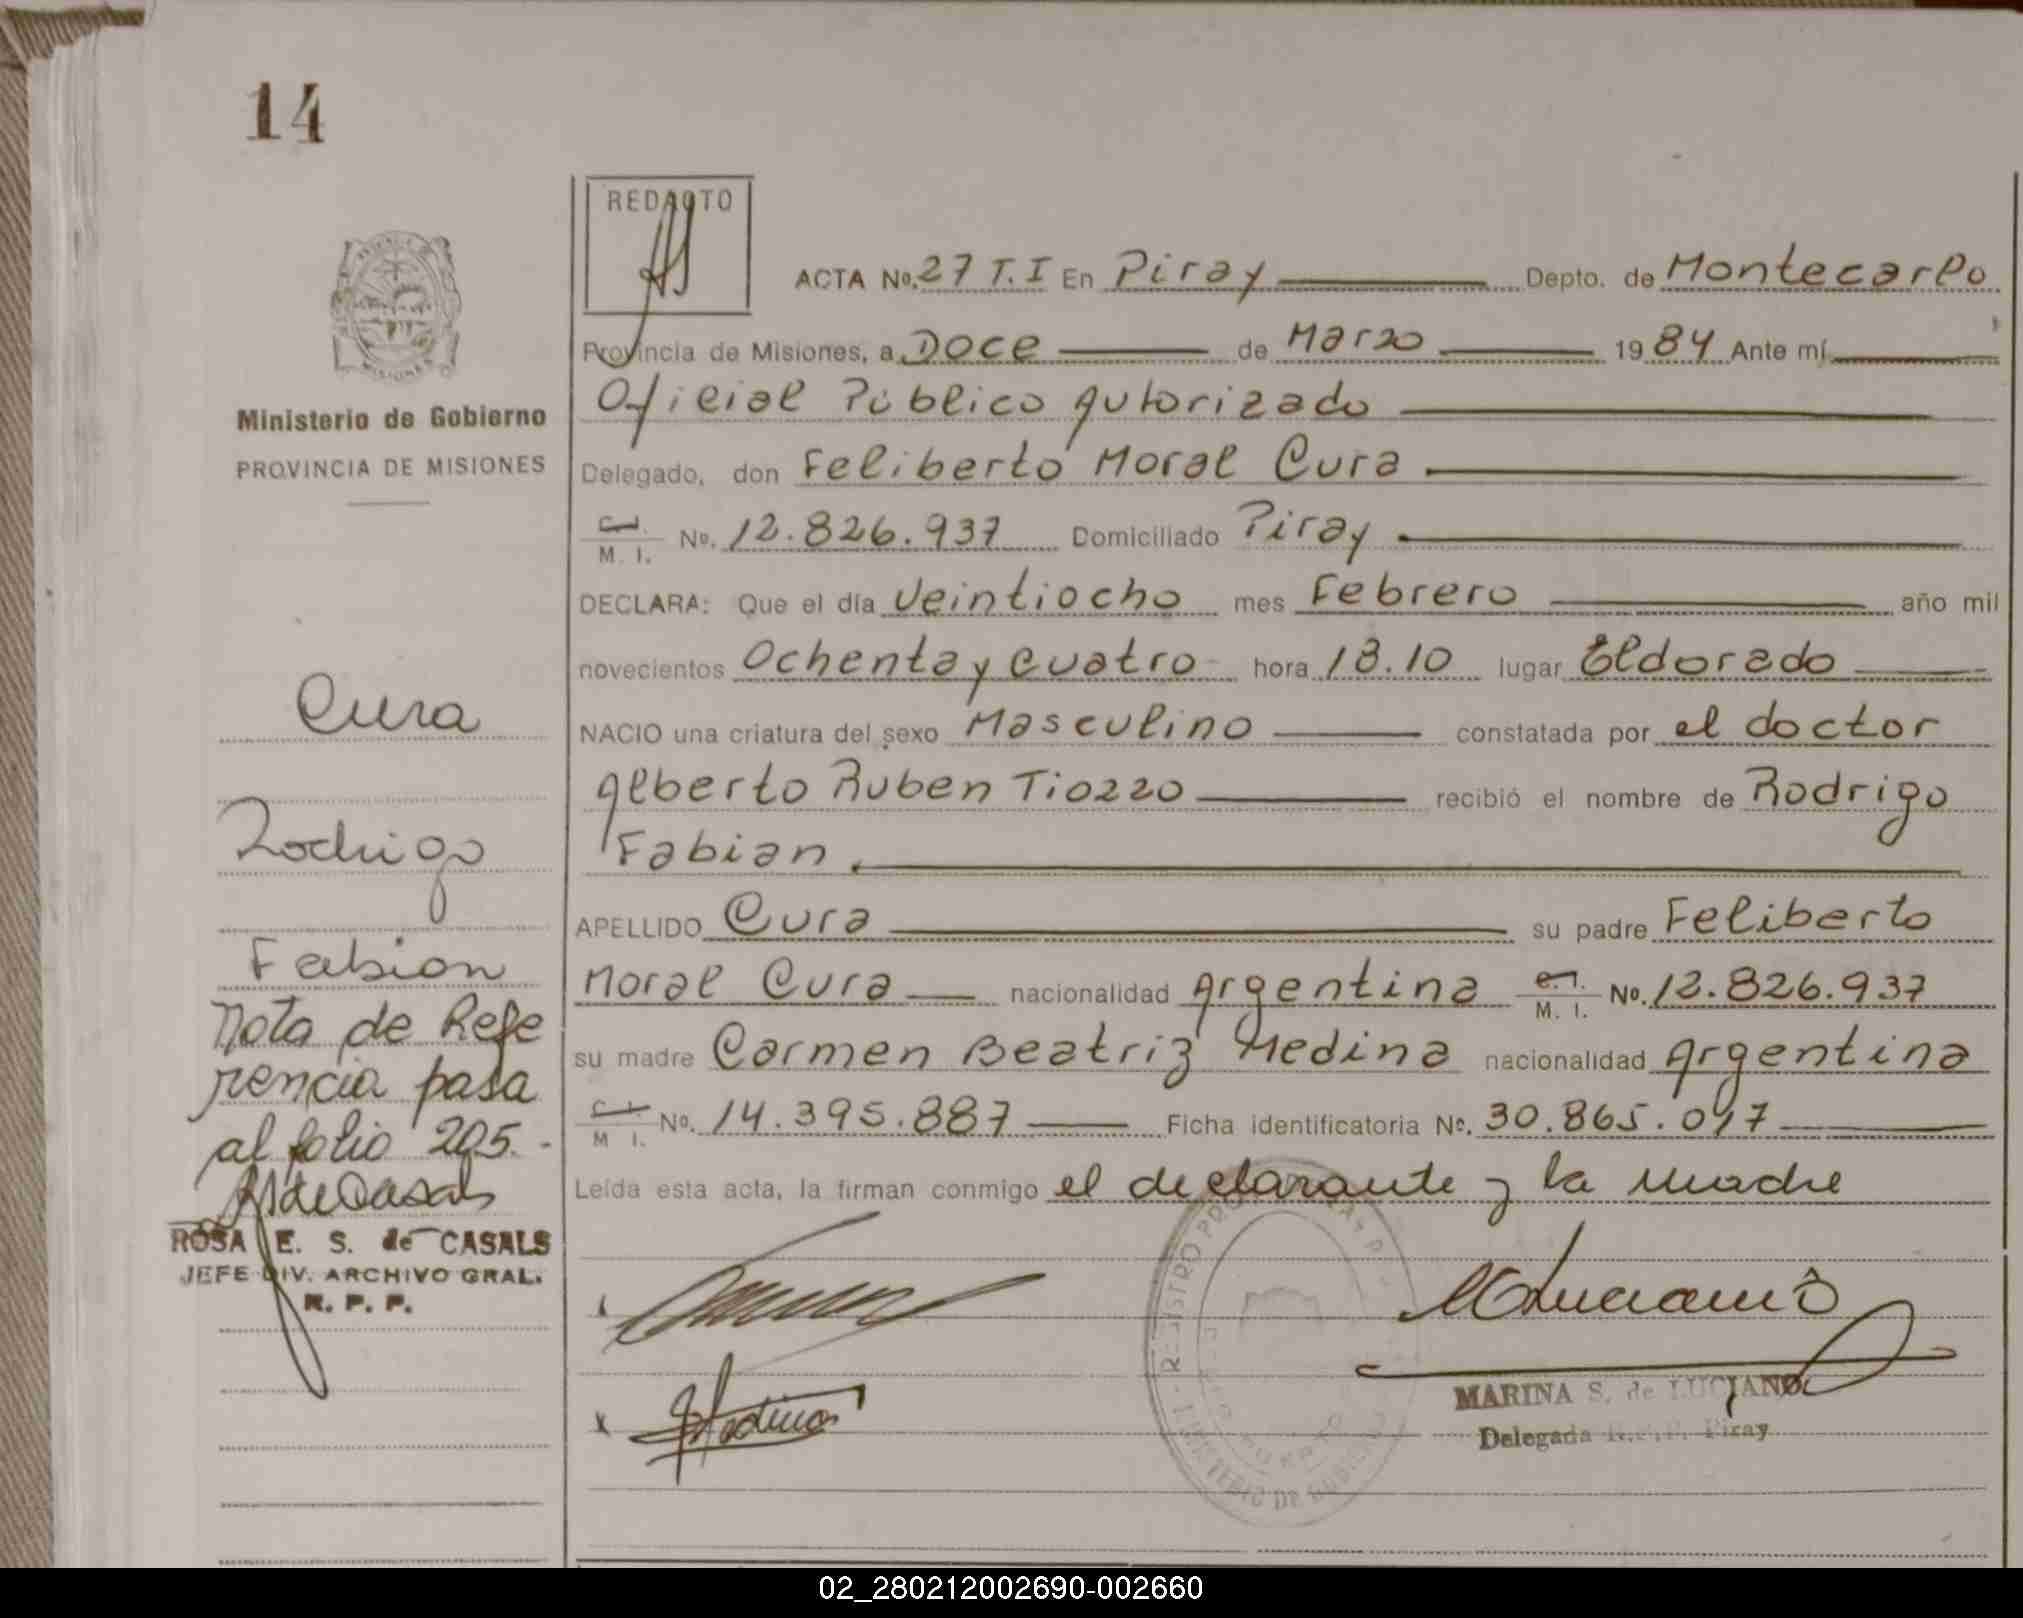 14
REDACTO
ACTA No. 27 T.I En Piray Depto. de Montecarlo
Provincia de Misiones, a Doce de Marzo 1984 Ante mí
Oficial Público Autorizado
Delegado, don Feliberto Moral Cura
C.I. M. I. No. 12.826.937 Domiciliado Piray
DECLARA: Que el día Veintiocho mes Febrero año mil
novecientos Ochenta y cuatro hora 18.10 lugar Eldorado
NACIO una criatura del sexo Masculino constatada por el doctor
Alberto Ruben Tiozzo recibió el nombre de Rodrigo
Fabian.
APELLIDO Cura su padre Feliberto
Moral Cura nacionalidad Argentina C.I. M. I. No. 12.826.937
su madre Carmen Beatriz Medina nacionalidad Argentina
C.I. M I. No. 14.395.887 Ficha identificatoria No. 30.865.017
Leída esta acta, la firman conmigo el declarante y la madre
MARINA S. de LUCIANO
Delegada R.P.P. Piray
Ministerio de Gobierno
PROVINCIA DE MISIONES
Cura
Rodrigo
Fabian
Nota de Refe
rencia pasa
al folio 205.-
RSdeCasals
ROSA E. S. de CASALS
JEFE DIV. ARCHIVO GRAL.
R. P. P.
02_280212002690-002660